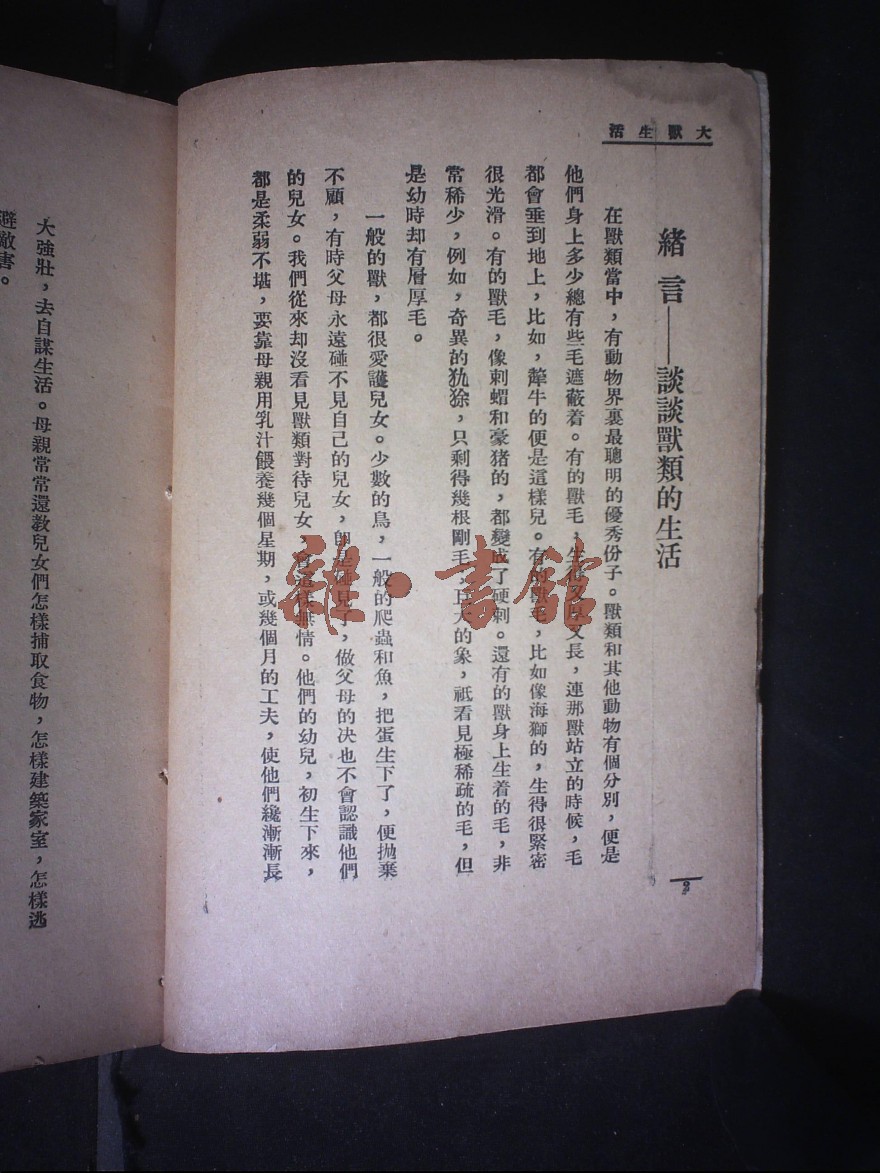 大獸生活
緒言——談談獸類的生活
在獸類當中，有動物界裏最聰明的優秀份子。獸類和其他動物有個分別，便是
他們身上多少總有些毛遮蔽着。有的獸毛，生得又厚又長，連那獸站立的時候，毛
都會垂到地上，比如，犛牛的便是這樣兒。有的獸毛，比如像海獅的，生得很緊密
很光滑。有的獸毛，像刺蝟和豪猪的，都變成了硬刺。還有的獸身上生着的毛，非
常稀少，例如，奇異的犰狳，只剩得幾根剛毛，巨大的象，祇看見極稀疏的毛，但
是幼時却有層厚毛。
一般的獸，都很愛護兒女。少數的鳥，一般的爬蟲和魚，把蛋生下了，便拋棄
不顧，有時父母永遠碰不見自己的兒女，卽是碰見了，做父母的決也不會認識他們
的兒女。我們從來却沒看見獸類對待兒女，會這樣無情。他們的幼兒，初生下來，
都是柔弱不堪，要靠母親用乳汁餵養幾個星期，或幾個月的工夫，使他們纔漸漸長
大強壯，去自謀生活。母親常常還教兒女們怎樣捕取食物，怎樣建築家室，怎樣逃
避敵害。
雜·書館